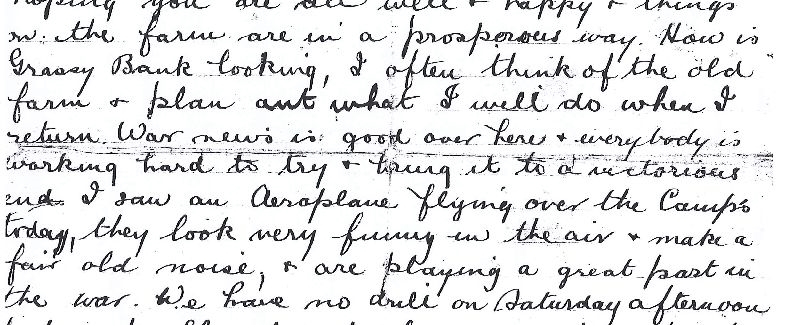 hoping you are all well & happy & things
on the farm are in a prosperous way. How is
Grassy Bank looking, I often think of the old
farm & plan out what I will do when I
return. War news is good over here & everybody is
working hard to try & bring it to a victorious
end. I saw an Aeroplane flying over the Camps
today, they look very funny in the air & make a
fair old noise, & are playing a great part in
the war. We have no drill on Saturday afternoon